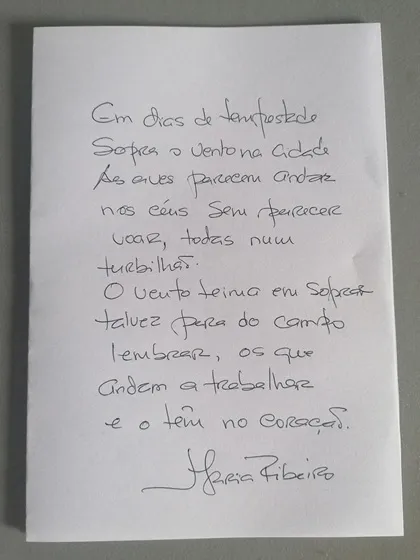 Em dias de tempestade
Sopra o vento na cidade
As aves parecem andar
nos céus sem parecer
voar, todas num
turbilhão.
O vento teima em soprar
talvez para do campo
lembrar, os que
andam a trabalhar
e o têm no coração.
Maria Ribeiro